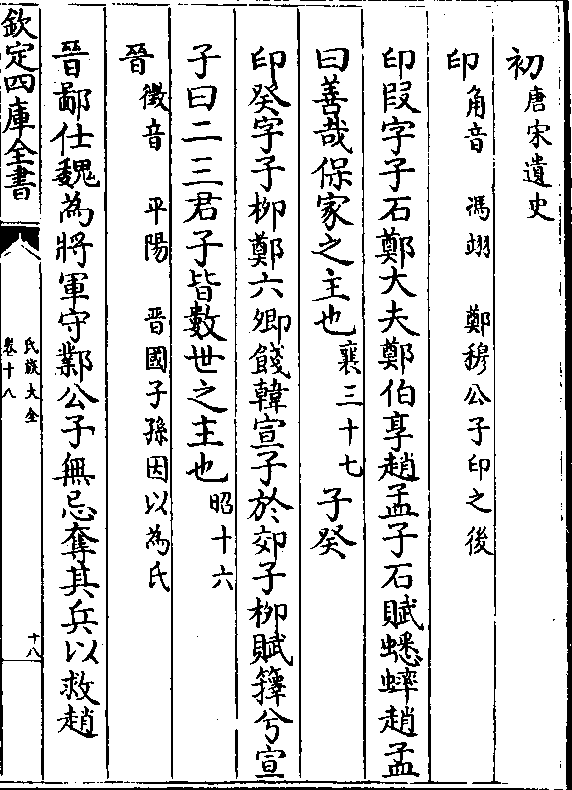 初唐宋遺史
印角音 馮翊 鄭穆公子印之後
印段字子石鄭大夫鄭伯享趙孟子石賦蟋蟀趙孟
曰善哉保家之主也襄三十七子癸
印癸字子柳鄭六卿餞韓宣子於郊子柳賦籜兮宣
子曰二三君子皆數世之主也昭十六
晉徵音 平陽 晉國子孫因以為氏
晉鄙仕魏為將軍守鄴公子無忌奪其兵以救趙
欽定四庫全書
氏族大全
卷十八
十八